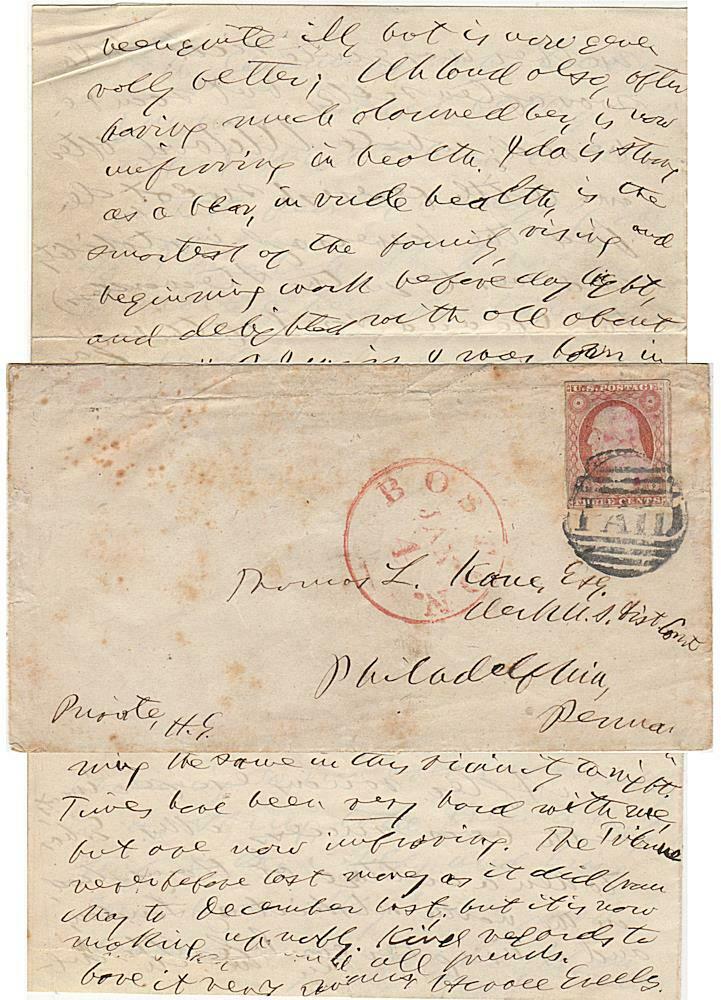 been quite ill, but is now gener
rally better; Uhland also, after
having much alarmed her, is now
improving in health. Ida is strong
as a bear, in rude health, is the
smartest of the family, rising and
beginning work before day light,
and delighted with all about
I was born in
U.S. POSTAGE
THREE CENTS
PAID
BOSTON
JAN
Thomas L. Kane, Esq.
Clerk U.S. Dist Court
Philadelphia,
Penna.
Private, H.G.
ning the same in this vicinity tonight.
Times have been very hard with me,
but are now improving. The Tribune
never before lost money as it did from
May to December last, but it is now
making up nobly. Kind regards to
all friends.
have it very Horace Greeley.